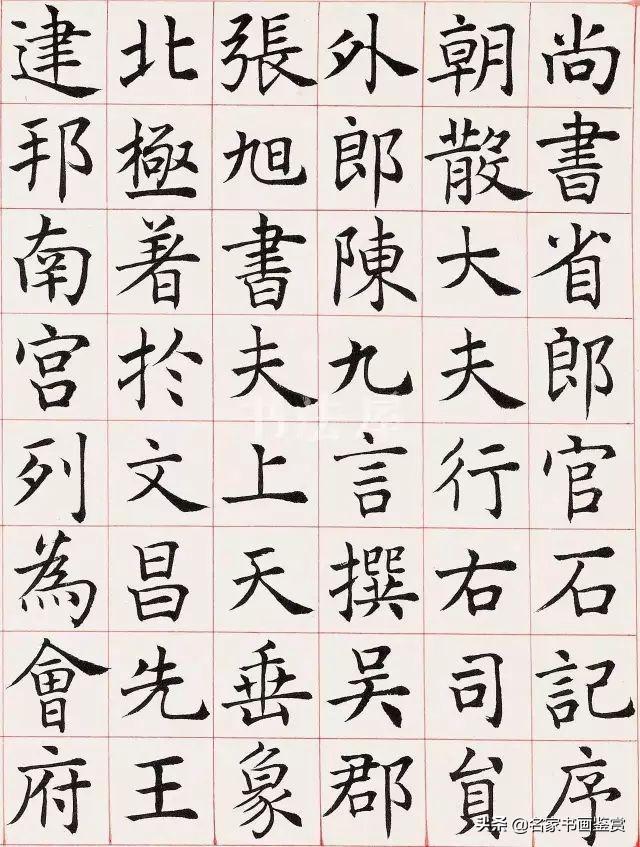 尚書省郎官石記序
朝散大夫行右司員
外郎陳九言撰吴郡
張旭書夫上天垂象
北極著於文昌先王
建邦南宮列為會府
书法屋
头条 @名家书画鉴赏